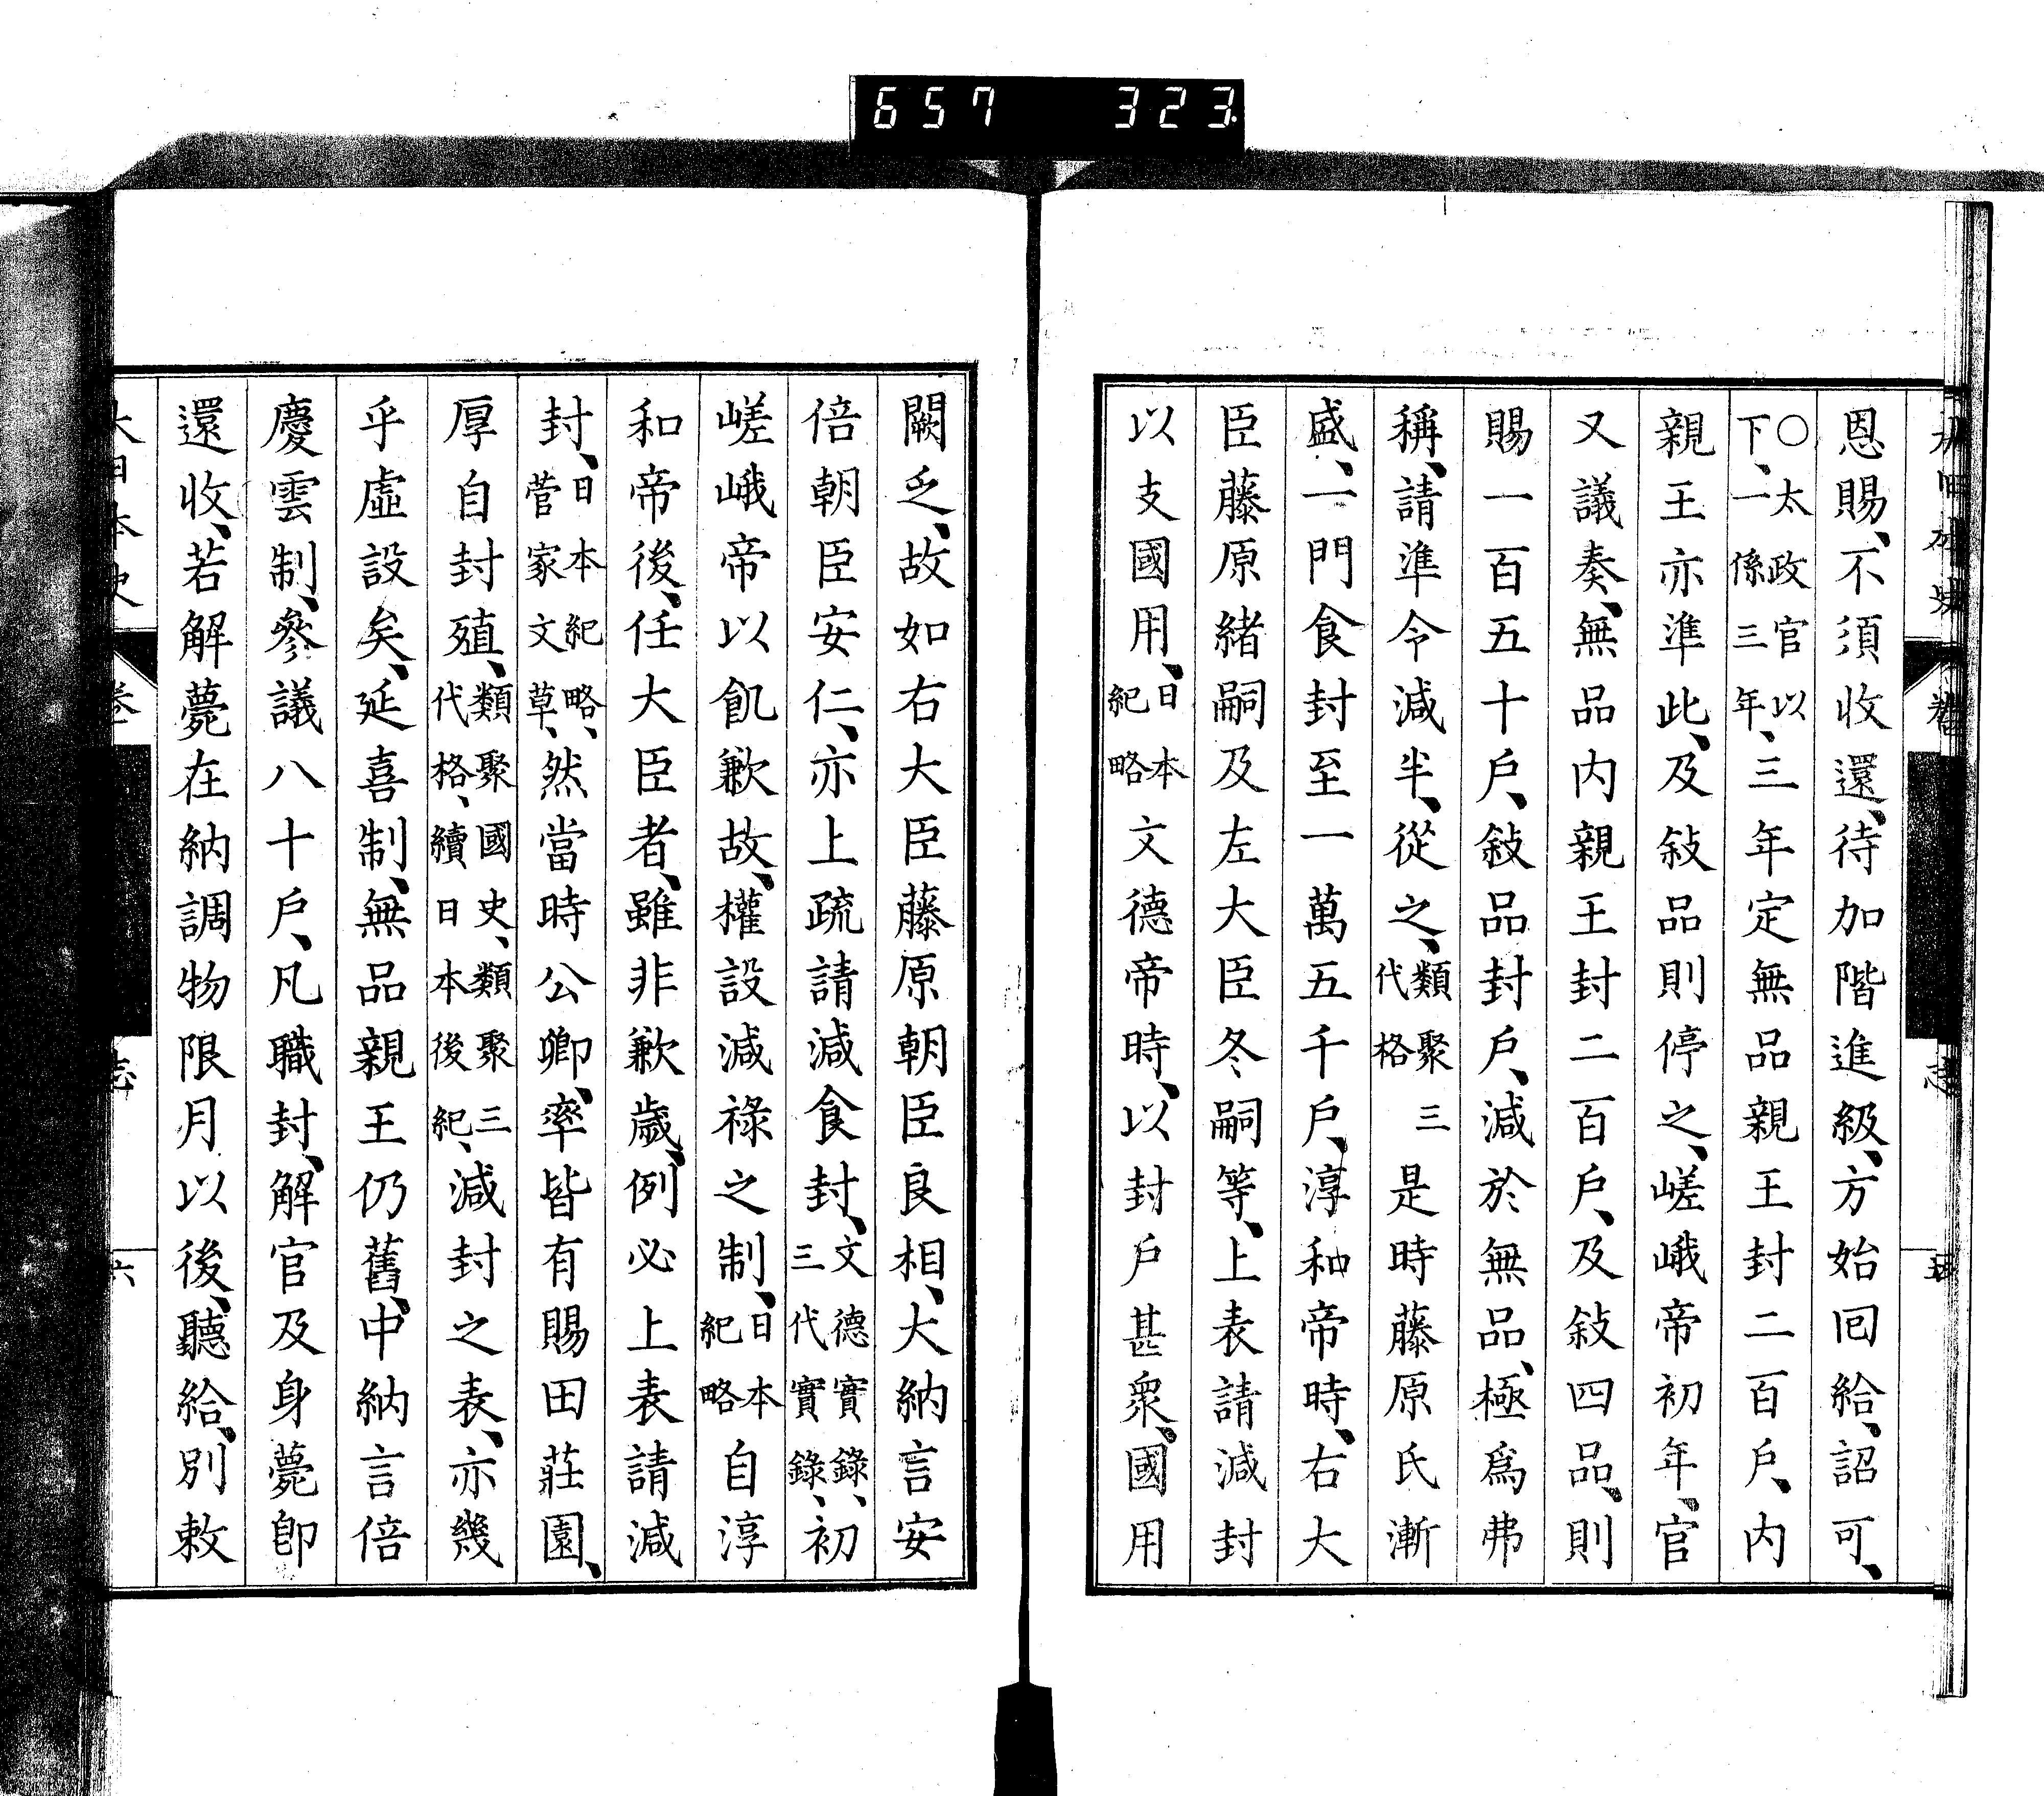 657 323
恩賜、不須收還、待加階進級、方始囘給、詔可、
○太政官以下、一係三年、三年定無品親王封二百戶、内
親王亦準此、及敍品則停之、嵯峨帝初年、官
又議奏、無品内親王封二百戶、及敍四品、則
賜一百五十戶、敍品封戶、減於無品、極爲弗
稱、請準令減半、從之、類聚三代格是時藤原氏漸
盛、一門食封至一萬五千戶、淳和帝時、右大
臣藤原緒嗣及左大臣冬嗣等、上表請減封
以支國用、日本紀略文德帝時、以封戶甚衆、國用
闕乏、故如右大臣藤原朝臣良相、大納言安
倍朝臣安仁、亦上疏請減食封、文德實錄、三代實錄、初
嵯峨帝以飢歉故、權設減祿之制、日本紀略自淳
和帝後、任大臣者、雖非歉歲、例必上表請減
封、日本紀略、菅家文草、然當時公卿、率皆有賜田莊園、
厚自封殖、類聚國史、類聚三代格、續日本後紀、減封之表、亦幾
乎虛設矣、延喜制、無品親王仍舊、中納言倍
慶雲制、參議八十戶、凡職封、解官及身薨卽
還收、若解薨在納調物限月以後、聽給、別敕
大日本史
志
六